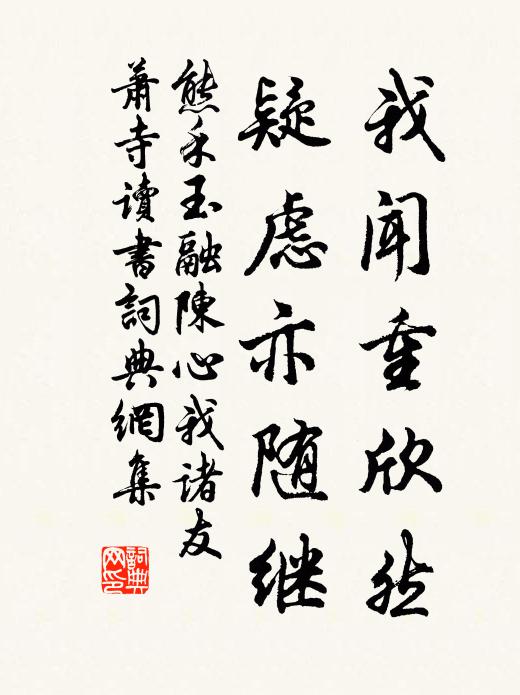 我闻重欣然
疑虑亦随继
熊禾玉融陳心我诸友
蕭寺讀書詞典網集
詞典网印